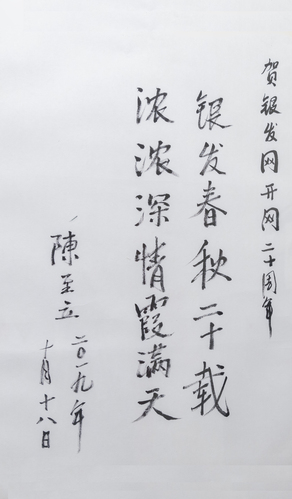 贺银发网开网二十周年
银发春秋二十载
浓浓深情霞满天
陳至立 二〇一九年
十月十八日